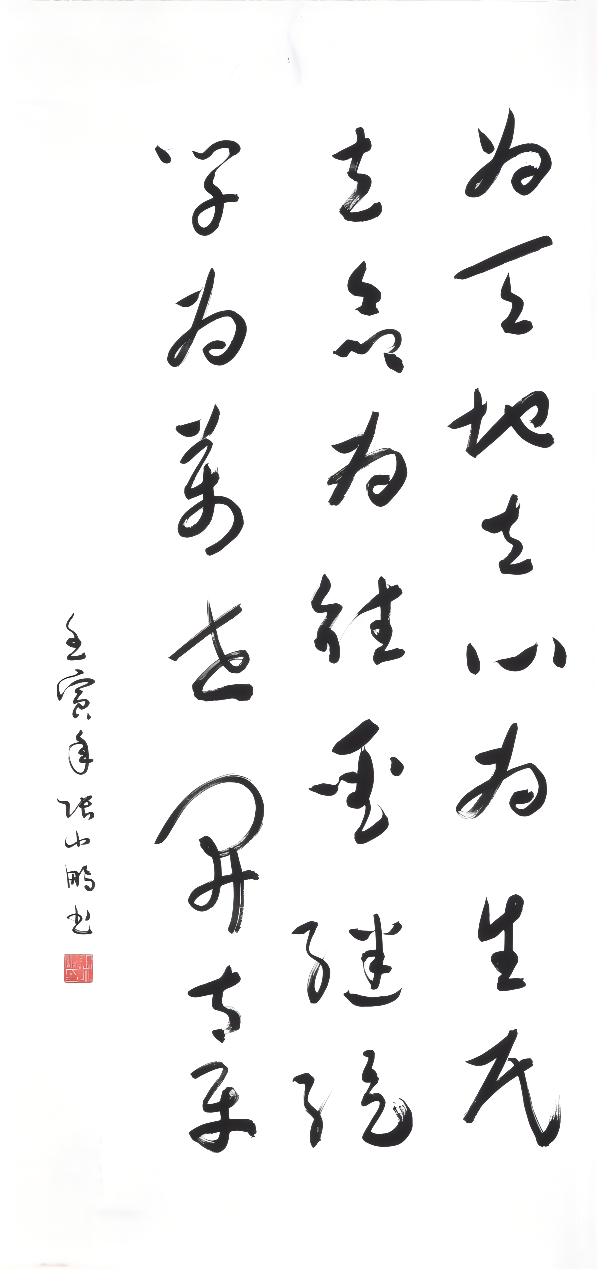 为天地立心为生民
立命为往圣继绝
学为萬世開太平
壬寅年张小鹏书